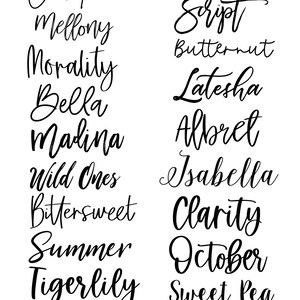 Mellony
Morality
Bella
Madina
Wild Ones
Bittersweet
Summer
Tigerlily
Script
Butternut
Latesha
Albret
Isabella
Clarity
October
Sweet Pea